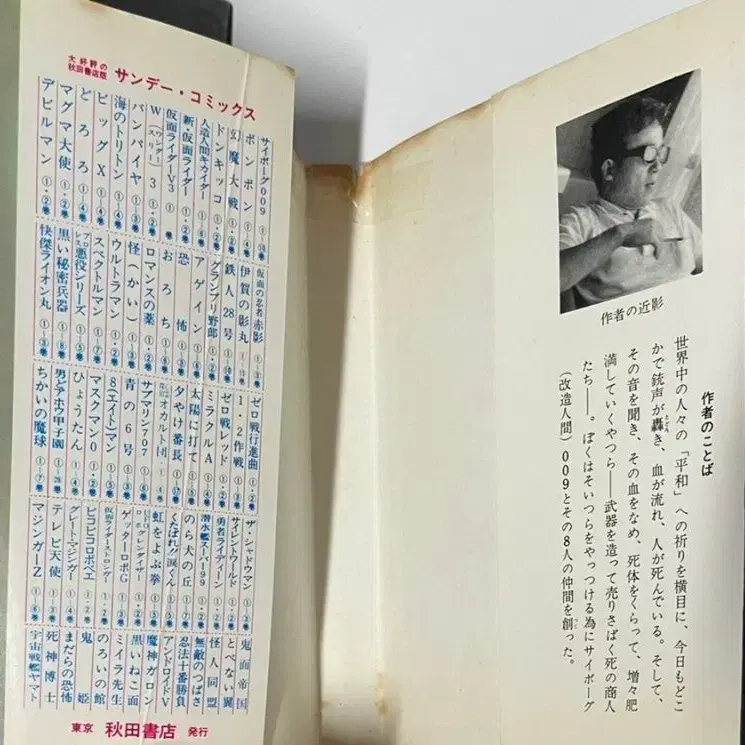 大好評の
秋田書店版
サンデー・コミックス
サイボーグ009 ①〜⑩巻
ボンボン ①〜④巻
幻魔大戦 ①・②巻
ドンキッコ ①・②巻
人造人間キカイダー ①〜⑥巻
新・仮面ライダー ①・②巻
仮面ライダーV3 ①巻
W3(ワンダースリー) ①・②巻
バンパイヤ ①〜③巻
海のトリトン ①〜④巻
ビッグX ①〜④巻
どろろ ①〜④巻
マグマ大使 ①・②巻
デビルマン ①・②巻
仮面の忍者赤影 ①〜③巻
伊賀の影丸
鉄人28号 ①〜⑩巻
グランプリ野郎 ①・②巻
アゲイン
恐怖
おろち ①〜⑥巻
ロマンスの薬
怪(かい) ①〜③巻
ウルトラマン ①・②巻
スペクトルマン ①〜⑦巻
プロレス悪役シリーズ ①〜⑤巻
黒い秘密兵器 ①〜⑧巻
快傑ライオン丸 ①〜③巻
ゼロ戦行進曲 ①・②巻
1・2作戦
ゼロ戦レッド
ミラクルA
太陽に打て
夕やけ番長 ①〜⑰巻
オカルト団
サブマリン707
青の6号 ①〜③巻
8(エイト)マン ①〜⑤巻
マスクマン0 ①・②巻
ひょうたん ①〜④巻
男どアホウ甲子園
ちかいの魔球 ①〜⑦巻
ザ・シャドウマン
サイレントワールド
勇者ライディーン
潜水艦スーパー99
のら犬の丘
くたばれ!!涙くん
虹をよぶ拳
グレンダイザー
ゲッターロボG
仮面ライダーストロンガー
ピコピコロボベエ
グレート・マジンガー
テレビ天使 ①〜③巻
マジンガーZ ①〜⑥巻
鬼面帝国
とべない翼
怪人同盟
無敵のつばさ
忍法十番勝負
アンドロイドV
魔神ガロン
黒いねこ面
ミイラ先生
のろいの館
鬼姫
まだらの恐怖
死神博士
宇宙戦艦ヤマト
東京 秋田書店 発行
作者の近影
作者のことば
世界中の人々の「平和」への祈りを横目に、今日もどこ
かで銃声が轟き、血が流れ、人が死んでいる。そして、
その音を聞き、その血をなめ、死体をくらって、増々肥
満していくやつら――武器を造って売りさばく死の商人
たち――。ぼくはそいつらをやっつける為にサイボーグ
(改造人間)009とその8人の仲間を創った。